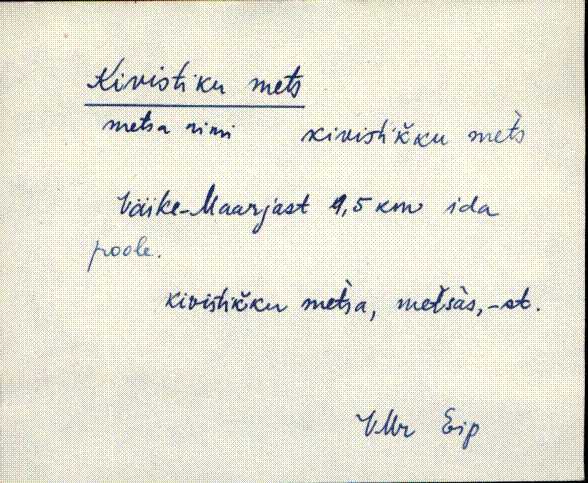 Kivistiku mets
metsa nimi kivistik̆ku met̀s
Väike-Maarjast 1,5 km ida
poole.
kivistik̆ku met̀sa, met̆sàs, -st.
VMr Eip